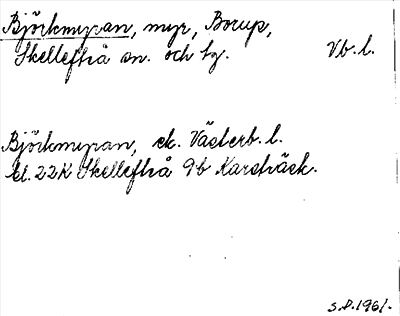 Björkmyran, myr, Borup,
Skellefteå sn. och tg. Vb. l.
Björkmyran, ek. Västerb. l.
bl. 22K Skellefteå 9b Karsträsk.
S.D. 1961.